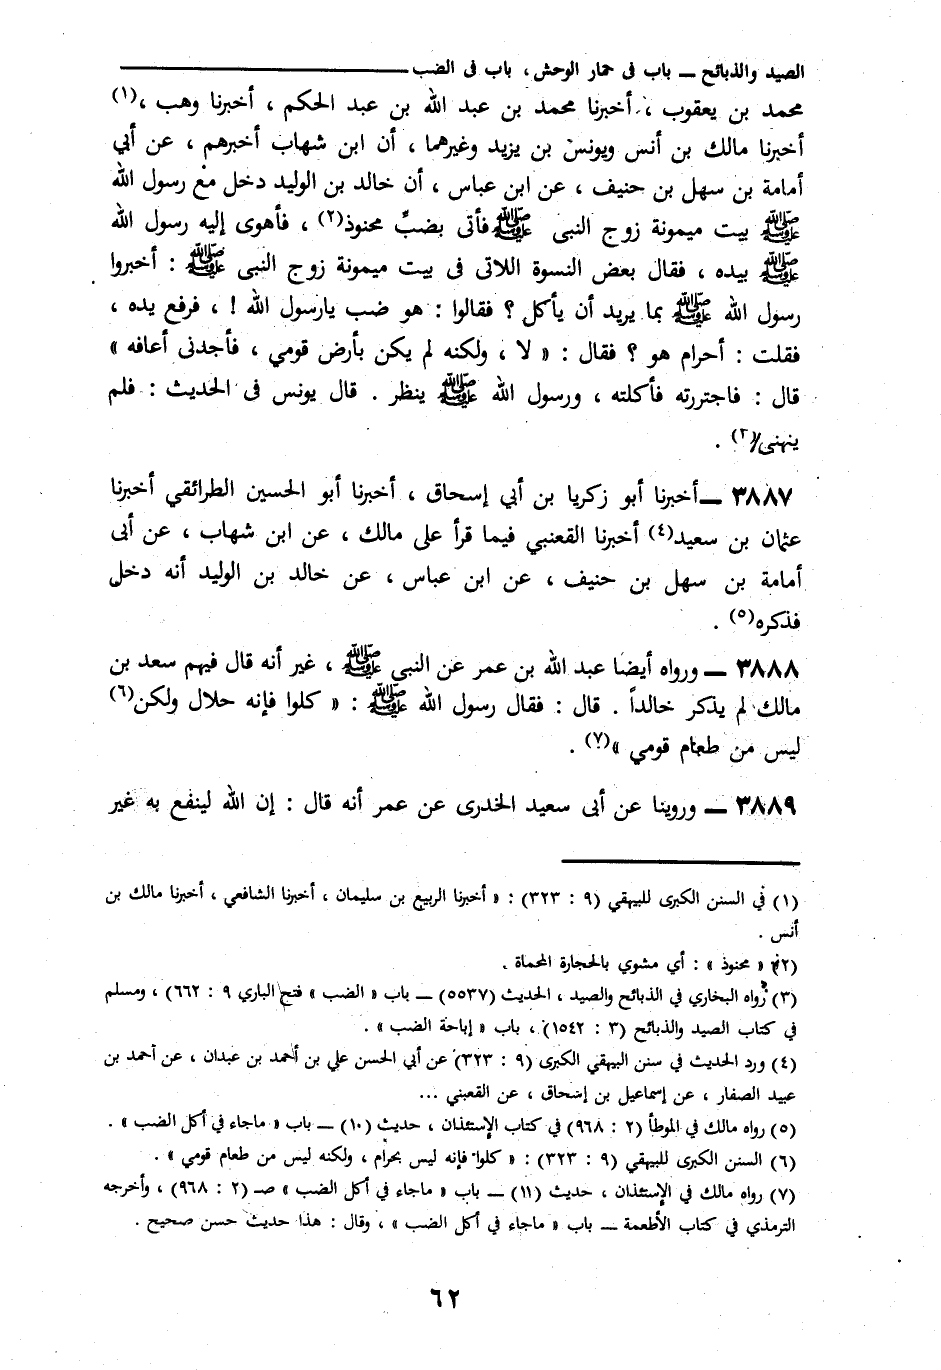 الصيد والذبائح ــ باب فى حمار الوحش، باب فى الضب
محمد بن يعقوب ، أخبرنا محمد بن عبد الله بن عبد الحكم ، أخبرنا وهب ،(١)
أخبرنا مالك بن أنس ويونس بن يزيد وغيرهما ، أن ابن شهاب أخبرهم ، عن أبي
أمامة بن سهل بن حنيف ، عن ابن عباس ، أن خالد بن الوليد دخل مع رسول الله
ﷺ بيت ميمونة زوج النبى ﷺ فأتى بضبٍّ محنوذ(٢) ، فأهوى إليه رسول الله
ﷺ بيده ، فقال بعض النسوة اللاتى فى بيت ميمونة زوج النبى ﷺ : أخبروا
رسول الله ﷺ بما يريد أن يأكل ؟ فقالوا : هو ضب يارسول الله ! ، فرفع يده ،
فقلت : أحرام هو ؟ فقال : « لا ، ولكنه لم يكن بأرض قومي ، فأجدنى أعافه »
قال : فاجتررته فأكلته ، ورسول الله ﷺ ينظر . قال يونس فى الحديث : فلم
ينهنى(٣) .
٣٨٨٧ ــ أخبرنا أبو زكريا بن أبي إسحاق ، أخبرنا أبو الحسين الطرائقي أخبرنا
عثمان بن سعيد(٤) أخبرنا القعنبي فيما قرأ على مالك ، عن ابن شهاب ، عن أبى
أمامة بن سهل بن حنيف ، عن ابن عباس ، عن خالد بن الوليد أنه دخل
فذكره(٥) .
٣٨٨٨ ــ ورواه أيضا عبد الله بن عمر عن النبى ﷺ ، غير أنه قال فيهم سعد بن
مالك لم يذكر خالداً . قال : فقال رسول الله ﷺ : « كلوا فإنه حلال ولكن(٦)
ليس من طعام قومي »(٧) .
٣٨٨٩ ــ وروينا عن أبى سعيد الخدرى عن عمر أنه قال : إن الله لينفع به غير
(١) في السنن الكبرى للبيهقي (٩ : ٣٢٣) : « أخبرنا الربيع بن سليمان ، أخبرنا الشافعي ، أخبرنا مالك بن
أنس .
(٢) « محنوذ » : أي مشوي بالحجارة المحماة .
(٣) رواه البخاري في الذبائح والصيد ، الحديث (٥٥٣٧) ــ باب « الضب » فتح الباري ٩ : ٦٦٢) ، ومسلم
في كتاب الصيد والذبائح (٣ : ١٥٤٢) ، باب « إباحة الضب » .
(٤) ورد الحديث في سنن البيهقي الكبرى (٩ : ٣٢٣) عن أبي الحسن علي بن أحمد بن عبدان ، عن أحمد بن
عبيد الصفار ، عن إسماعيل بن إسحاق ، عن القعنبي ...
(٥) رواه مالك في الموطأ (٢ : ٩٦٨) في كتاب الإستئذان ، حديث (١٠) ــ باب « ماجاء في أكل الضب » .
(٦) السنن الكبرى للبيهقي (٩ : ٣٢٣) : « كلوا فإنه ليس بحرام ، ولكنه ليس من طعام قومي » .
(٧) رواه مالك في الإستئذان ، حديث (١١) ــ باب « ماجاء في أكل الضب » صـ (٢ : ٩٦٨) ، وأخرجه
الترمذي في كتاب الأطعمة ــ باب « ماجاء في أكل الضب » ، وقال : هذا حديث حسن صحيح .
٦٢